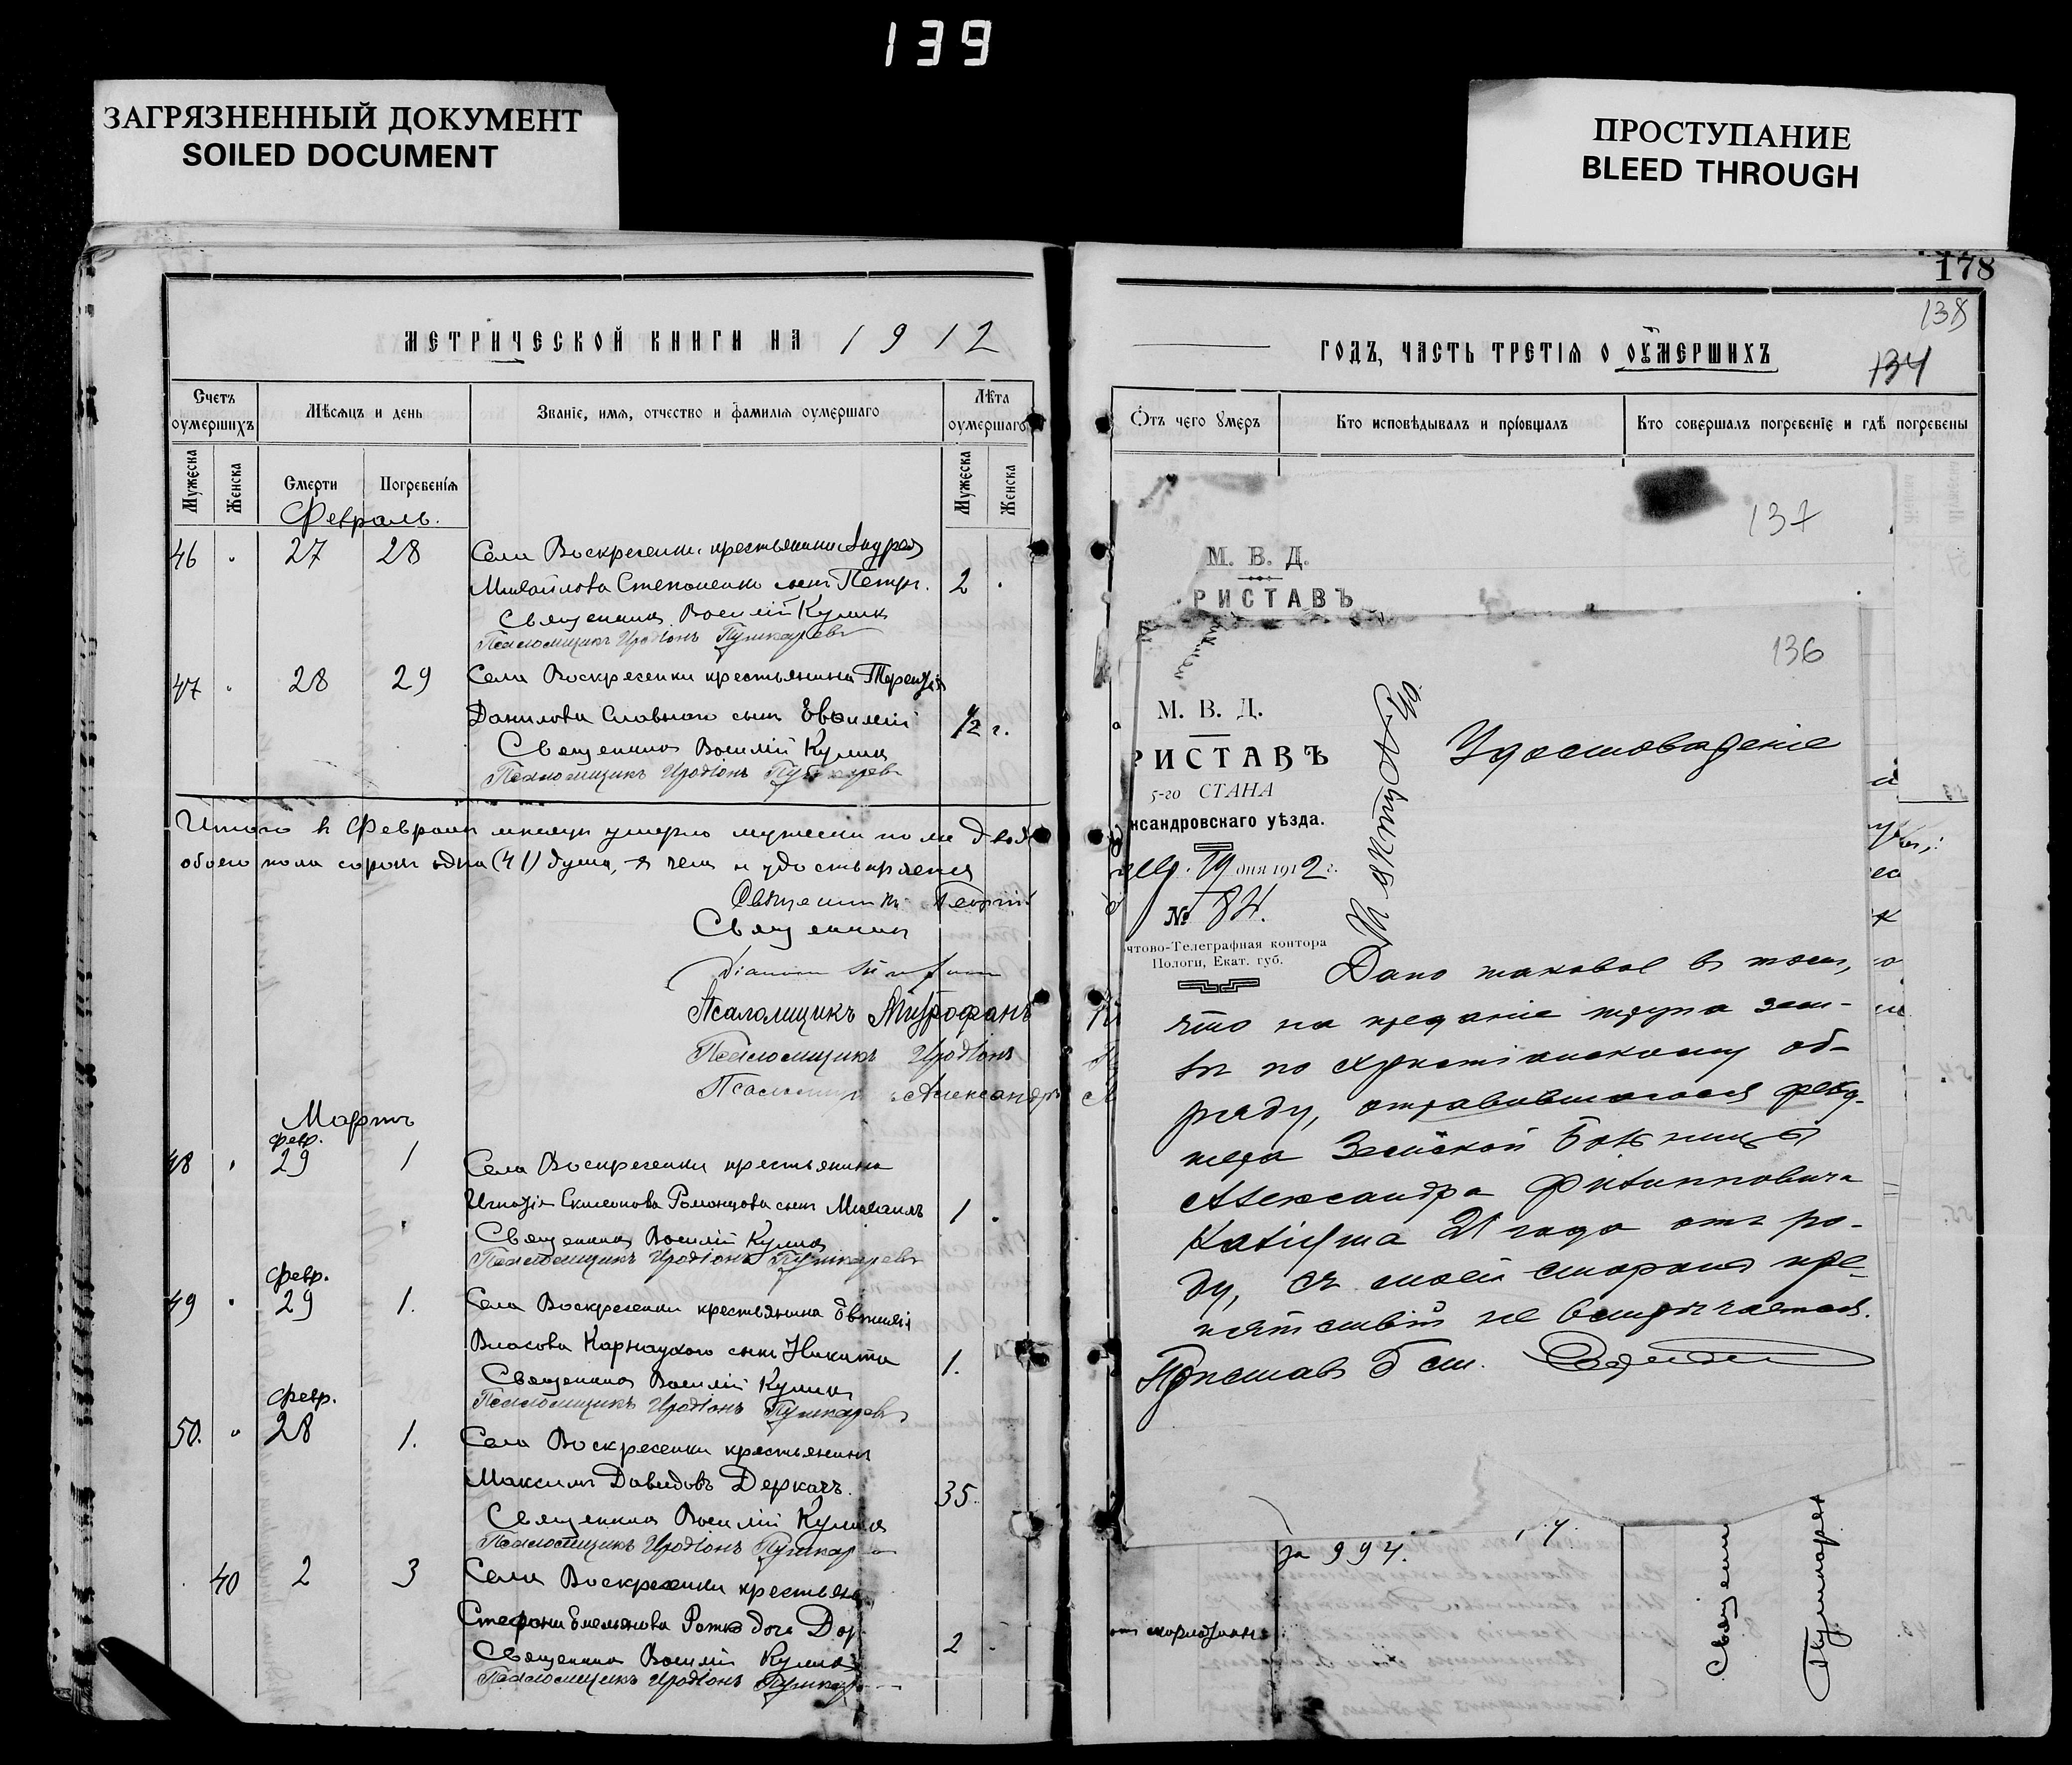 139
ЗАГРЯЗНЕННЫЙ ДОКУМЕНТ
SOILED DOCUMENT
ПРОСТУПАНИЕ
BLEED THROUGH
МЕТРИЧЕСКОЙ КНИГИ НА 1912
Счетъ оумершихъ
Мѣсяцъ и день
Званіе, имя, отчество и фамилія оумершаго
Лѣта оумершаго
Мужеска
Женска
Смерти
Погребенія
Мужеска
Женска
Февраль.
46 " 27 28 Села Воскресенки крестьянина Андрея
Михайлова Степаненко сынъ Петръ. 2
Священникъ Василій Куликъ
Псаломщикъ Иродіонъ Пушкаревъ
47 " 28 29 Села Воскресенки крестьянина Терентія
Данилова Славнаго сынъ Евѳимій 1/2 г.
Священникъ Василій Куликъ
Псаломщикъ Иродіонъ Пушкаревъ
Итого въ Февралѣ мѣсяцѣ умерло мужеска пола
обоего пола сорокъ одна (41) душа, въ чемъ и удостовѣряется
Священникъ Георгій
Священникъ
Псаломщикъ Митрофанъ
Псаломщикъ Иродіонъ
Псаломщикъ Александръ
Мартъ
48 " Февр. 29 1 Села Воскресенки крестьянина
Игнатія Романцова сынъ Михаилъ 1
Священникъ Василій Куликъ
Псаломщикъ Иродіонъ Пушкаревъ
49 " Февр. 29 1. Села Воскресенки крестьянина Евѳимія
Власова Карнаухого сынъ Никита 1.
Священникъ Василій Куликъ
Псаломщикъ Иродіонъ Пушкаревъ
50. " Февр. 28 1. Села Воскресенки крестьянинъ
Максимъ Давидовъ Деркачъ. 35.
Священникъ Василій Куликъ
Псаломщикъ Иродіонъ Пушкар
40 2 3 Села Воскресенки крестьян
Стефана Емельянова дочь 2
Священникъ Василій Куликъ
Псаломщикъ Иродіонъ Пушкар
178
138
134
ГОДЪ, ЧАСТЬ ТРЕТІЯ О ОУМЕРШИХЪ
Отъ чего умеръ
Кто исповѣдывалъ и пріобщалъ
Кто совершалъ погребеніе и гдѣ погребены
137
М. В. Д.
РИСТАВЪ
136
М. В. Д.
РИСТАВЪ
5-го СТАНА
ксандровскаго уѣзда.
19 дня 1912 г.
№ 84.
чтово-Телеграфная контора
Пологи, Екат. губ.
Къ акту № 40
Удостовѣреніе
Дано таковое въ томъ,
что на преданіе трупа зем-
лѣ по христіанскому об-
ряду, отравившагося
Земской Больницы
Александра Филипповича
21 года отъ ро-
ду, съ моей стороны пре-
пятствій не встрѣчается.
Приставъ 5 ст.
за 994.
отъ скарлатины
Священ
Пушкарев